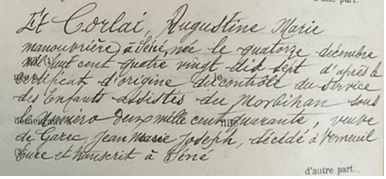 d'une part.
Et Corlai, Augustine Marie
manouvrière, à Séné, née le quatorze décembre
mil huit cent quatre vingt dix sept d'après le
certificat d'origine du contrôle du Service
des Enfants Assistés du Morbihan sous
le numéro deux mille cent quarante, veuve
de Garec Jean Marie Joseph, décédé à Verneuil
Eure et transcrit à Séné
d'autre part.